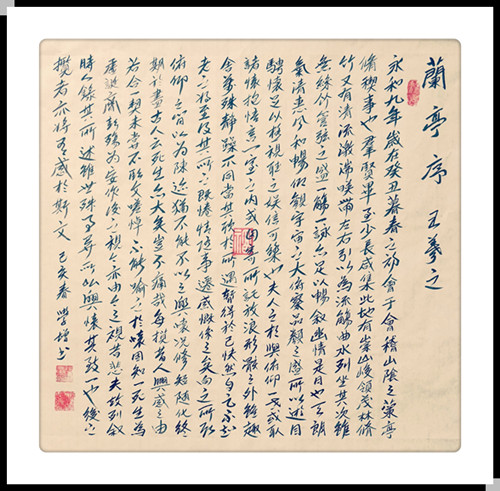 蘭亭序 王羲之
永和九年歲在癸丑暮春之初會于會稽山陰之蘭亭
脩禊事也羣賢畢至少長咸集此地有崇山峻領茂林脩
竹又有清流激湍暎帶左右引以為流觴曲水列坐其次雖
無絲竹管弦之盛一觴一詠亦足以暢敘幽情是日也天朗
氣清惠風和暢仰觀宇宙之大俯察品類之盛所以遊目
騁懷足以極視聽之娛信可樂也夫人之相與俯仰一世或取
諸懷抱悟言一室之內或因寄所託放浪形骸之外雖趣
舍萬殊靜躁不同當其欣於所遇暫得於己快然自足不知
老之將至及其所之既惓情隨事遷感慨係之矣向之所欣
俯仰之間以為陳迹猶不能不以之興懷況脩短隨化終
期於盡古人云死生亦大矣豈不痛哉每攬昔人興感之由
若合一契未嘗不臨文嗟悼不能喻之於懷固知一死生為
虛誕齊彭殤為妄作後之視今亦由今之視昔悲夫故列敘
時人錄其所述雖世殊事異所以興懷其致一也後之
攬者亦將有感於斯文 己亥春 學增書